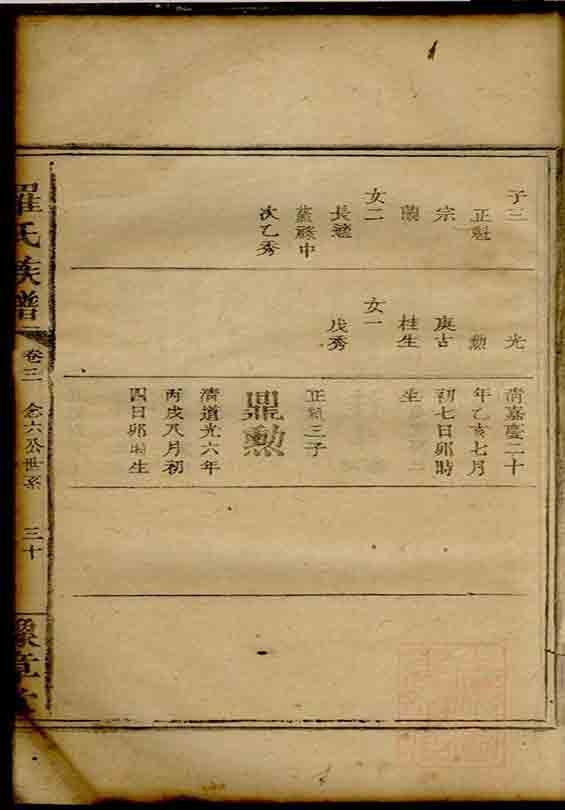 子三
正魁
宗
蘭
女二
長適
藍蔴中
次乙秀
光
勲
庚古
桂生
女一
戊秀
清嘉慶二十
年乙亥七月
初七日卯時
生
正氣三子
鼎勲
清道光六年
丙戌八月初
四日卯時生
羅氏族譜
卷三
念六公世系
三十
豫章堂